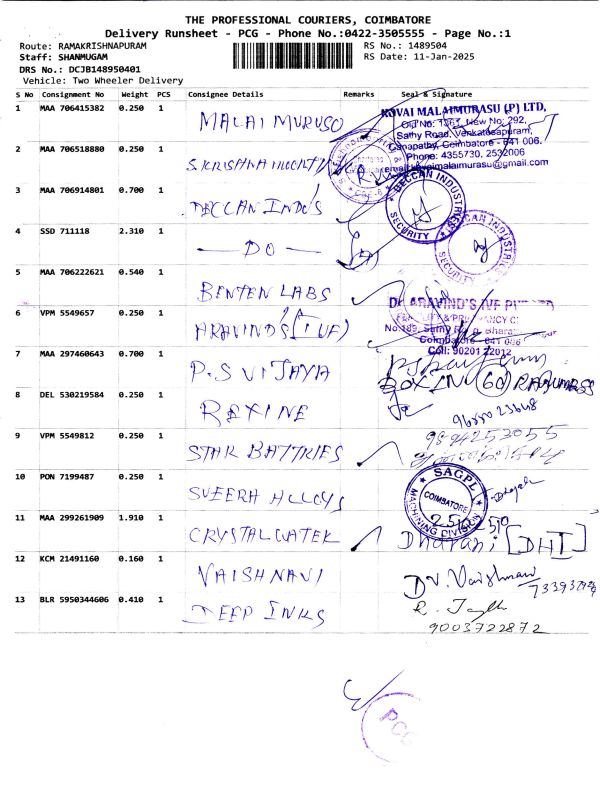 THE PROFESSIONAL COURIERS, COIMBATORE
Delivery Runsheet - PCG - Phone No.:0422-3505555 - Page No.:1
Route: RAMAKRISHNAPURAM RS No.: 1489504
Staff: SHANMUGAM RS Date: 11-Jan-2025
DRS No.: DCJB148950401
Vehicle: Two Wheeler Delivery
S No Consignment No Weight PCS Consignee Details Remarks Seal & Signature
1 MAA 706415382 0.250 1 MALAI MURUSO
KOVAI MALAIMURASU (P) LTD,
Old No: New No: 292,
Sathy Road, Venkatesapuram,
Ganapathy, Coimbatore - 641 006.
Phone: 4355730, 2532006
2 MAA 706518880 0.250 1 S. KRISHNA
3 MAA 706914801 0.700 1 DECCAN INDUS
DECCAN INDUSTRIES
SECURITY
4 SSD 711118 2.310 1 — DO —
DECCAN INDUSTRIES
SECURITY
5 MAA 706222621 0.540 1 BENTEN LABS
6 VPM 5549657 0.250 1 ARAVINDS (IVF)
Dr. ARAVIND'S IVF
No.189, Sathy
Coimbatore - 641 006
Cell: 90201 22012
7 MAA 297460643 0.700 1 P.S VIJAYA
8 DEL 530219584 0.250 1 REXINE
9 VPM 5549812 0.250 1 STAR BATTRIES
9894252055
10 PON 7199487 0.250 1 SVEERA ALLOYS
SAGPL
COIMBATORE
MACHINING DIVISION
11 MAA 299261909 1.910 1 CRYSTAL WATER
Dharani [DHT]
12 KCM 21491160 0.160 1 VAISHNAVI
DV. Vaishnavi
13 BLR 5950344606 0.410 1 DEEP INKS
9003722872
PCG